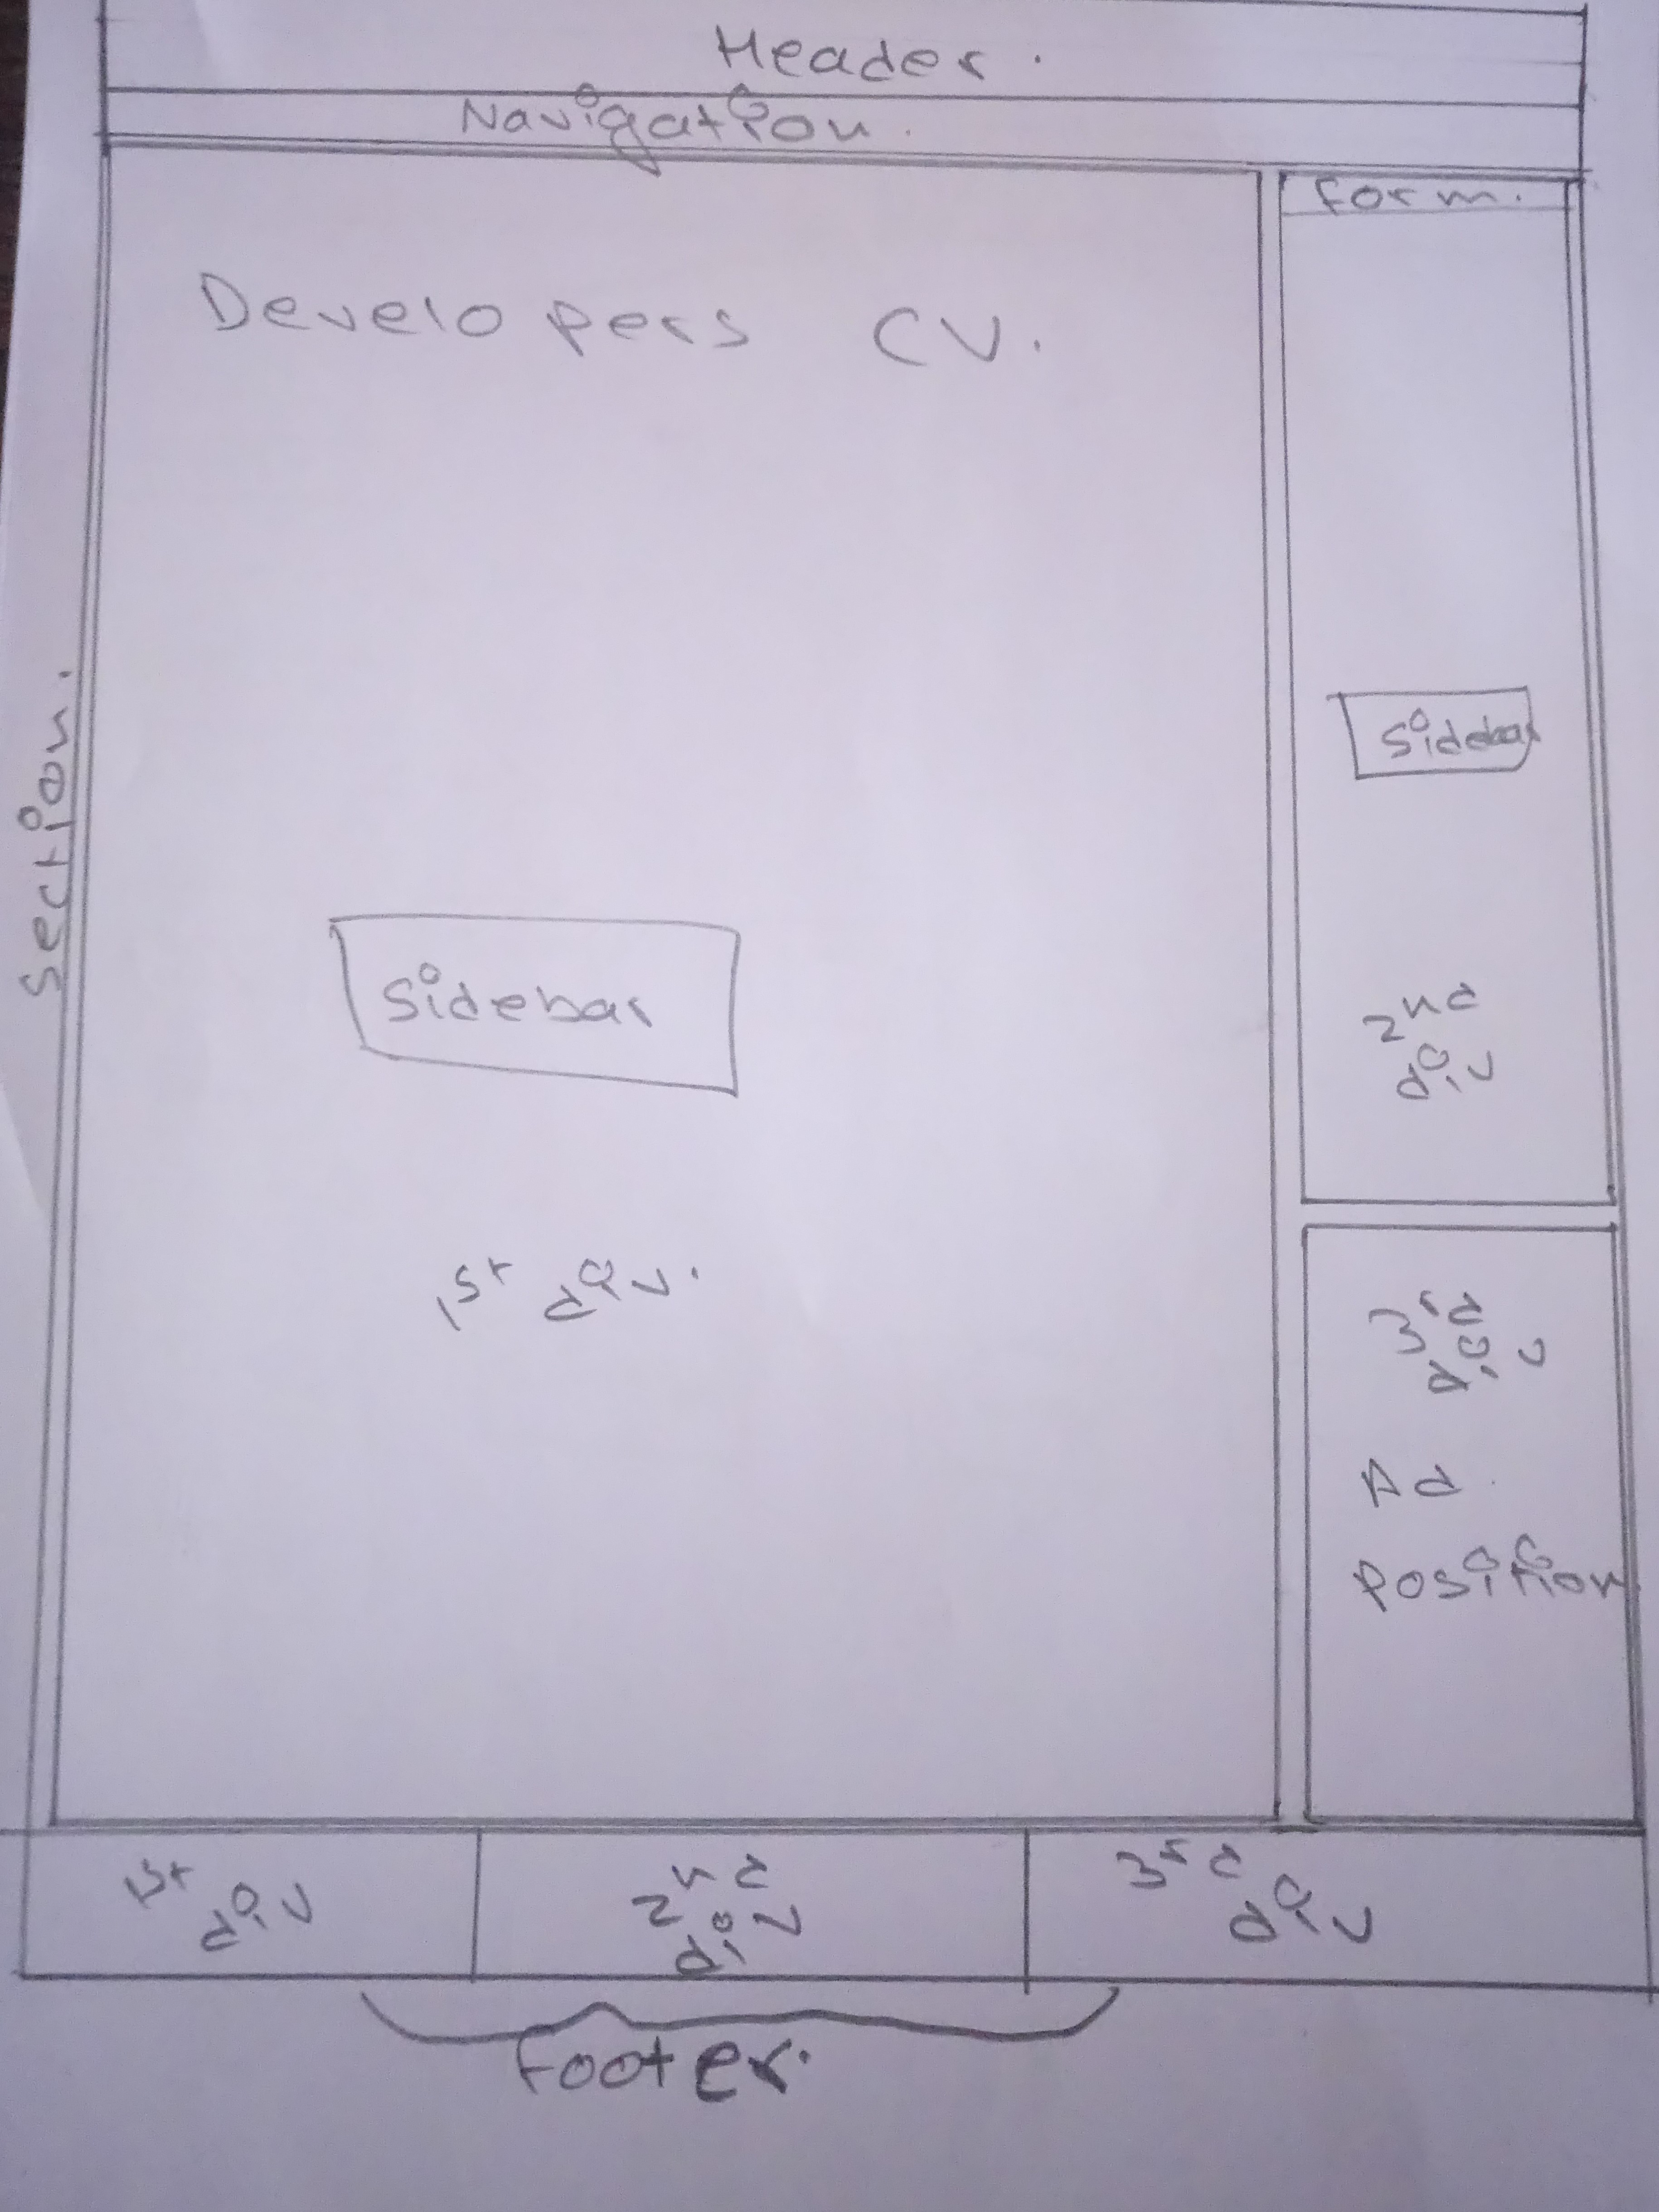 Header.
Navigation.
form.
Developers CV.
Section.
Sidebar
Sidebar
2nd
div
1st div.
3rd
div
Ad
Position
1st
div
2nd
div
3rd
div
footer.